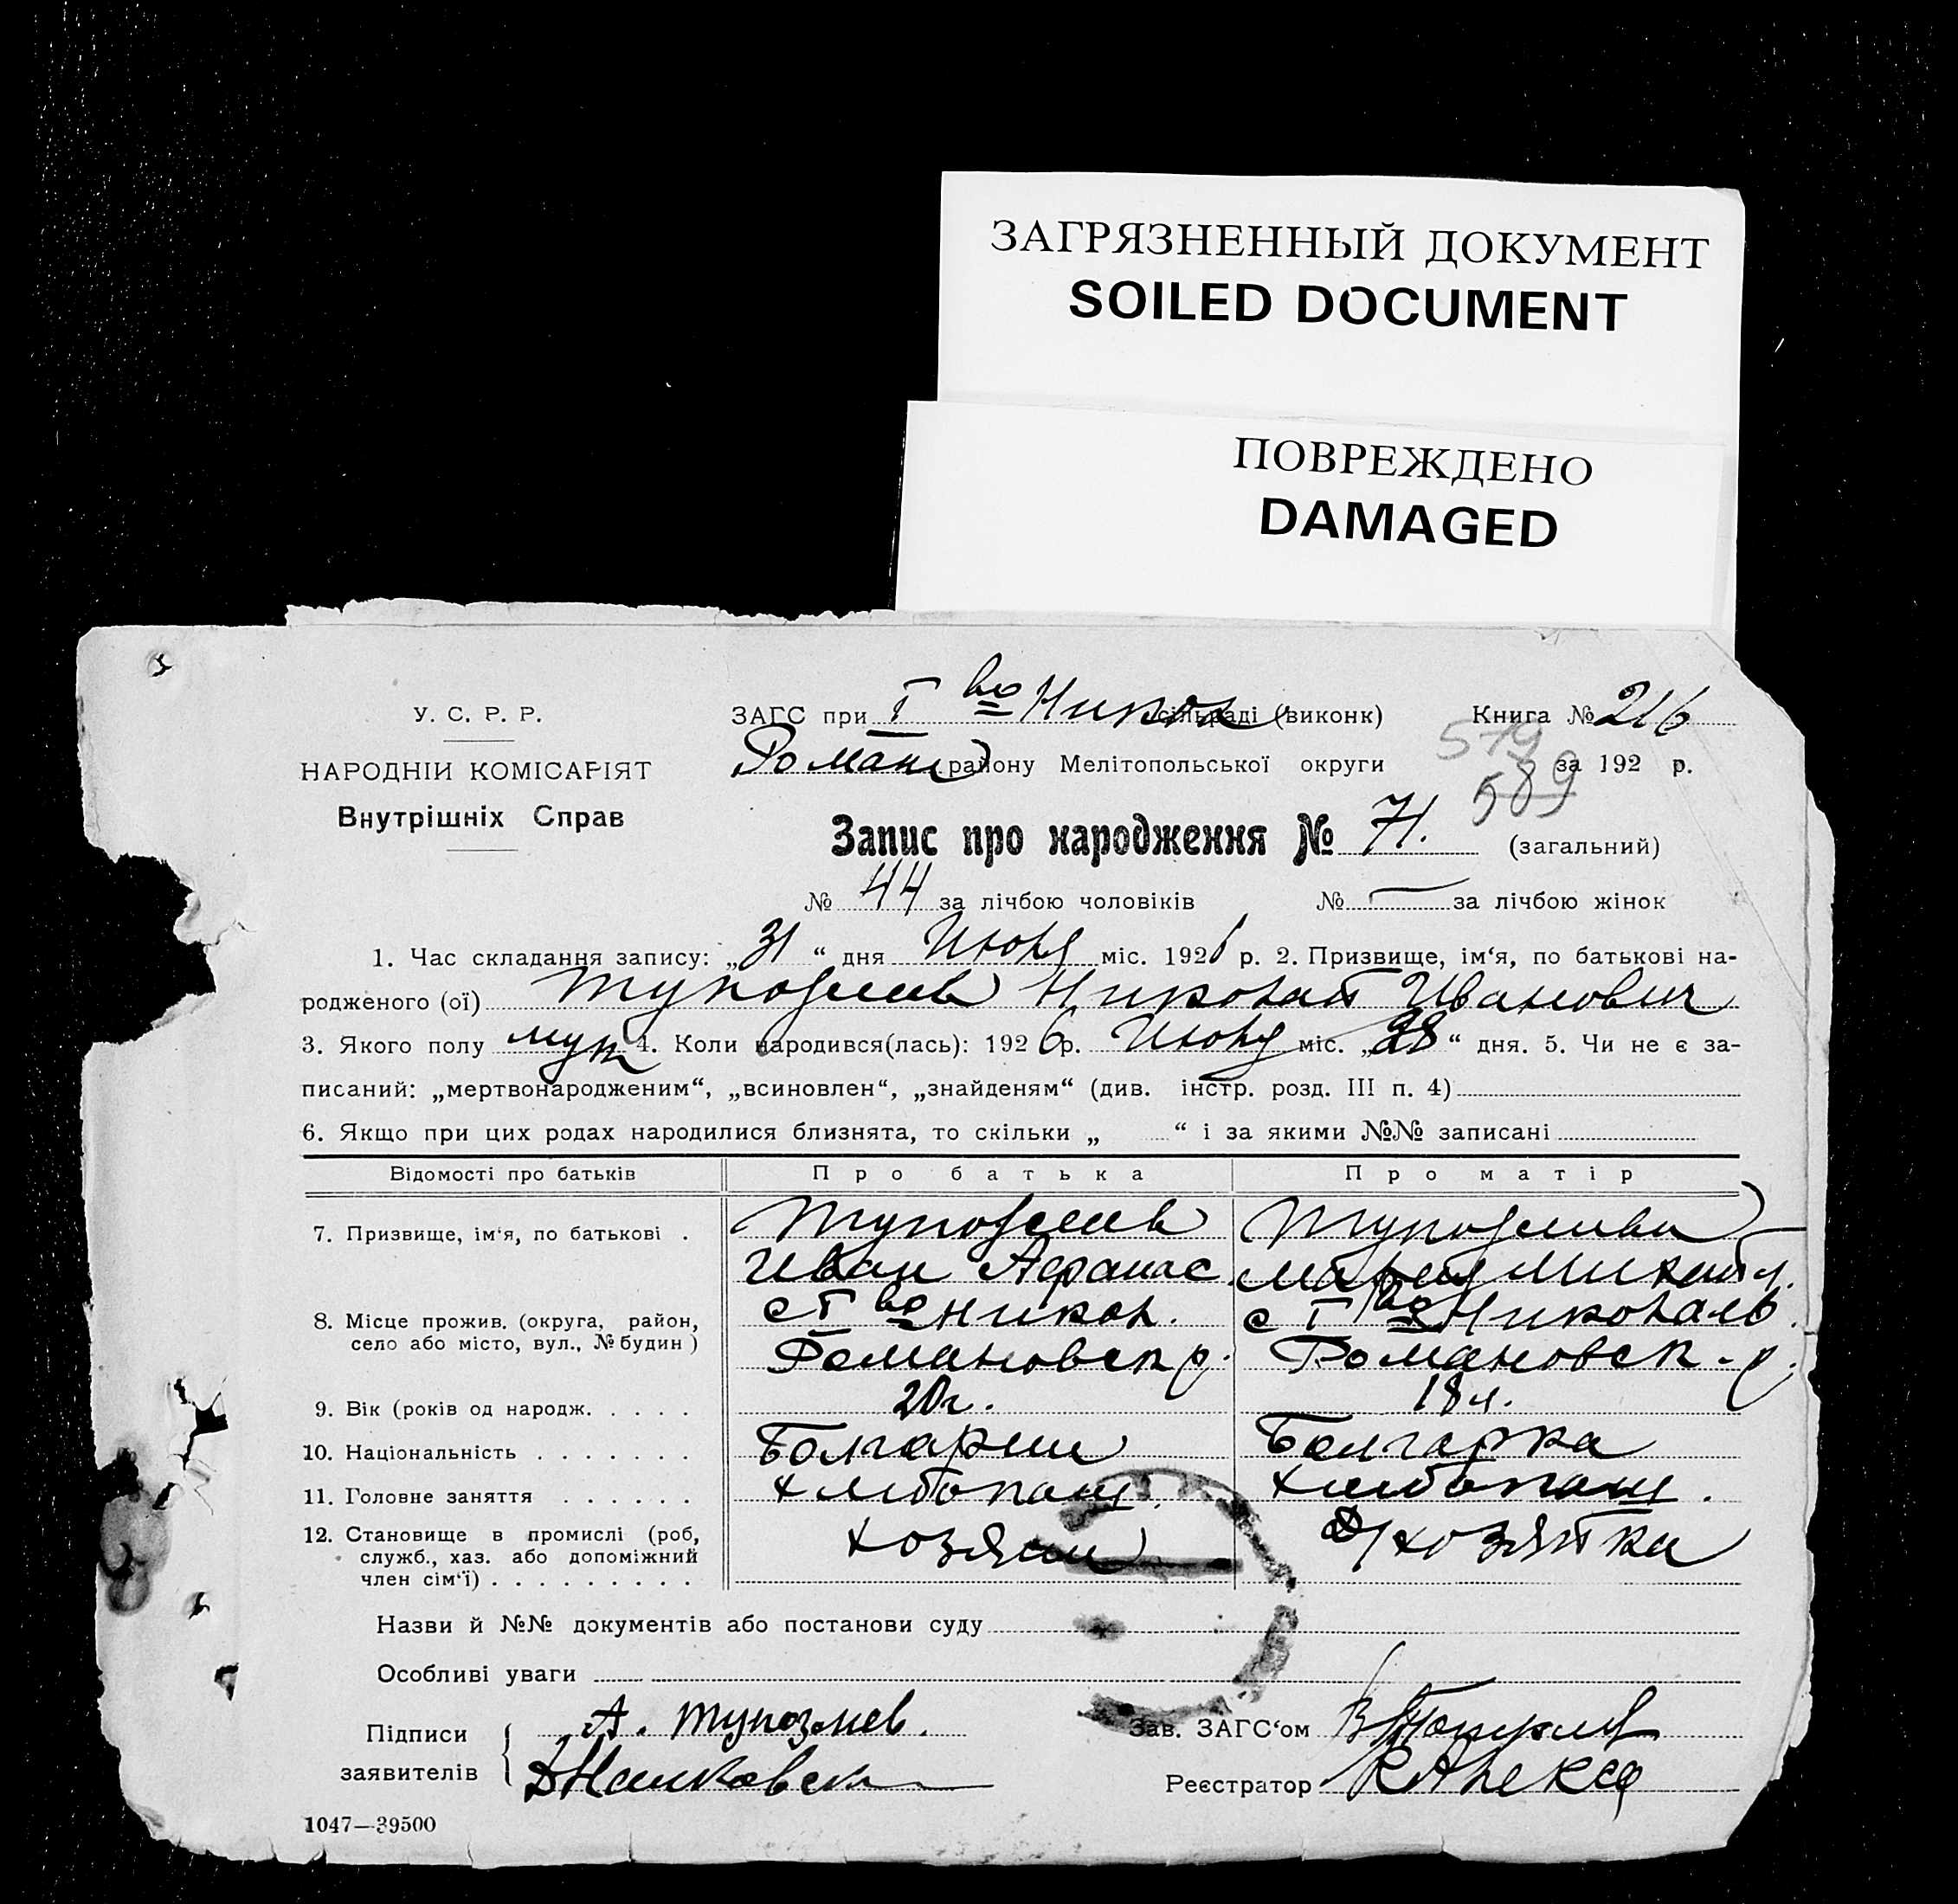 ЗАГРЯЗНЕННЫЙ ДОКУМЕНТ
SOILED DOCUMENT
ПОВРЕЖДЕНО
DAMAGED
У. С. Р. Р.
НАРОДНІЙ КОМІСАРІЯТ
Внутрішніх Справ
ЗАГС при I во Никол сільраді (виконк) Книга № 216
Роман району Мелітопольської округи 579 за 192 р.
589
Запис про народження № 71. (загальний)
№ 44 за лічбою чоловіків № — за лічбою жінок
1. Час складання запису: „31“ дня Июля міс. 1926 р. 2. Призвище, ім‘я, по батькові на-
родженого (ої) Тупозлиев Николай Иванович
3. Якого полу муж 4. Коли народився(лась): 1926 р. Июля міс. „28“ дня. 5. Чи не є за-
писаний: „мертвонародженим“, „всиновлен“, „знайденям“ (див. інстр. розд. III п. 4)
6. Якщо при цих родах народилися близнята, то скільки „ “ і за якими №№ записані
Відомості про батьків Про батька Про матір
7. Призвище, ім‘я, по батькові . Тупозлиев Тупозлиева
Иван Афанас. Мария Михайл.
8. Місце прожив. (округа, район, с I во Никол. с I во Николаев.
село або місто, вул., № будин ) Романовск р. Романовск. р.
9. Вік (років од народж. . . . . 20 г. 18 л.
10. Національність . . . . . . . Болгарин Болгарка
11. Головне заняття . . . . . . хлебопаш. хлебопаш.
12. Становище в промислі (роб, хозяин д/хозяйка
служб., хаз. або допоміжний
член сім‘ї) . . . . . . . . .
Назви й №№ документів або постанови суду
Особливі уваги
Підписи А. Тупозлиев. Зав. ЗАГС‘ом
заявителів Реєстратор
1047—39500